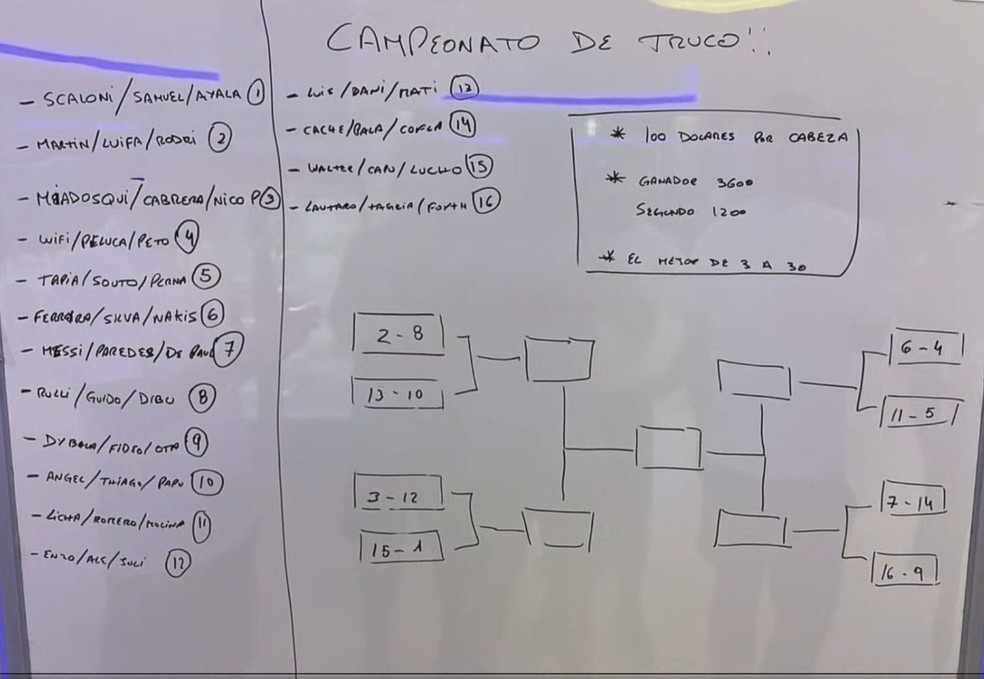 CAMPEONATO DE TRUCO!!
- SCALONI/SAMUEL/AYALA 1
- MARTIN/LUIFA/RODRI 2
- MIADOSQUI/CABRERA/NICO P 3
- WIFI/PELUCA/PETO 4
- TAPIA/SOUTO/PERNA 5
- FERREIRA/SILVA/NAKIS 6
- MESSI/PAREDES/DE PAUL 7
- RULLI/GUIDO/DIBU 8
- DYBALA/FIDEO/OTA 9
- ANGEL/THIAGO/PAPU 10
- LICHA/ROMERO/MOLINA 11
- ENZO/ALE/JULI 12
- LUIS/DANI/MATI 13
- CACHE/BALA/COFLA 14
- WALTER/CAPU/LUCHO 15
- LAUTARO/TAGLIA/FOYTH 16
* 100 DOLARES POR CABEZA
* GANADOR 3600
SEGUNDO 1200
* EL MEJOR DE 3 A 30
2-8
13-10
3-12
15-1
6-4
11-5
7-14
16-9